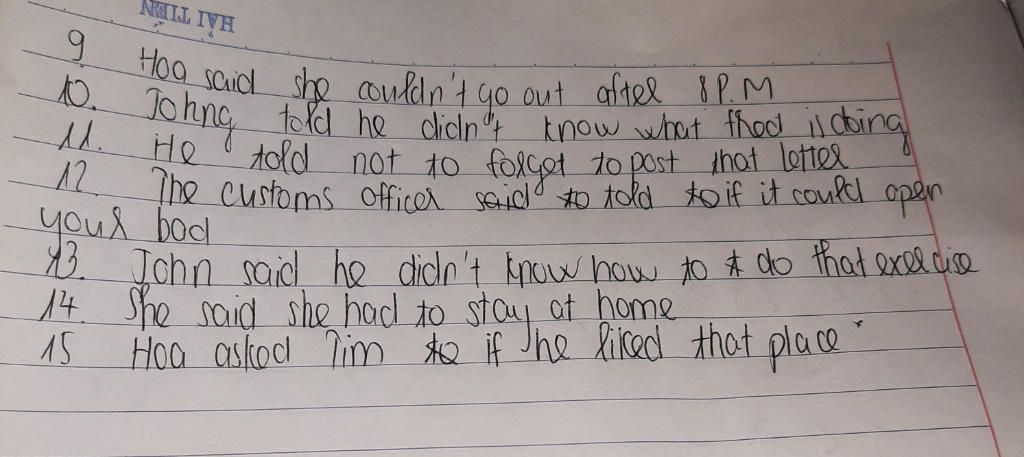 HẢI TIẾN
9 Hoa said she couldn't go out after 8 P.M
10. Johng told he didn't know what fhod is doing
11. He told not to forget to post that letter
12 The customs officer said to told to if it could open
your bad
13. John said he didn't know how to t do that exercise
14. She said she had to stay at home
15 Hoa asked Tim to if he liked that place